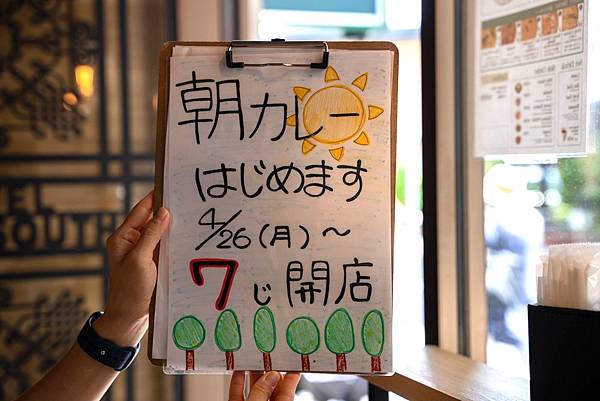 朝カレー
はじめます
4/26(月)~
7じ開店
EL
SOUTH